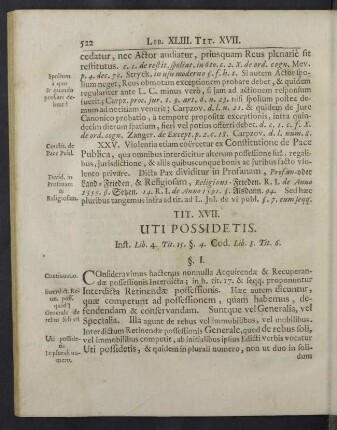 522 LIB. XLIII. TIT. XVII.
cedatur, nec Actor audiatur, priusquam Reus plenarie sit
restitutus. c. 1. de restit. spoliat. in 6to. c. 2. X. de ord. cogn. Mev.
Spolium
à quo
& quando
probari de-
beat?
p. 4. dec. 70. Stryck. in usu moderno §. f. h. t. Si autem Actor spo-
lium neget, Reus obmotam exceptionem probare debet, & quidem
regulariter ante L. C. minus verò, si jam ad actionem responsum
fuerit; Carpz. proc. jur. t. 9. art. 6. n. 23. nisi spolium postea de-
mum ad notitiam pervenerit. Carpzov. d. l. n. 21. & quidem de Jure
Canonico probatio, à tempore propositæ exceptionis, intra quin-
decim dierum spatium, fieri vel potius offerri debet. d. c. 1. c. f. X.
de ord. cogn. Zanger. de Except. p. 2. c. 18. Carpzov. d. l. num. 8.
Constit. de
Pace Publ.
XXV. Violentia etiam coërcetur ex Constitutione de Pace
Publica, qua omnibus interdicitur alterum possessione suâ, regali-
bus, jurisdictione, & aliis quibuscunque bonis ac juribus facto vio-
Divid. in
Profanam
&
Religiosam.
lento privare. Dicta Pax dividitur in Profanam, Profan- oder
Land-Frieden, & Religiosam, Religions-Frieden. R. I. de Anno
1555. §. Setzen. 14. R. I. de Anno 1591. §. 94. Sed hæc
pluribus tangemus infra ad tit. ad L. Jul. de vi publ. §. 7. cum seqq.
TIT. XVII.
UTI POSSIDETIS.
Inst. Lib. 4. Tit. 15. §. 4. Cod. Lib. 8. Tit. 6.
§. I.
Continuatio.
Consideravimus hactenus nonnulla Acquirendæ & Recuperan-
dæ possessionis Interdicta; in h. tit. 17. & seqq. proponuntur
Interdict. Ret.
poss.
quid?
Interdicta Retinendæ possessionis. Hæc autem dicuntur,
quæ competunt ad possessionem, quam habemus, de-
Generale de
rebus soli est
fendendam & conservandam. Suntque vel Generalia, vel
Specialia. Illa agunt de rebus vel immobilibus, vel mobilibus.
Interdictum Retinendæ possessionis Generale, quod de rebus soli,
Uti posside-
tis
in plurali nu-
mero.
vel immobilibus competit, ab initialibus ipsius Edicti verbis vocatur
Uti possidetis, & quidem in plurali numero, non ut duo in soli-
dum